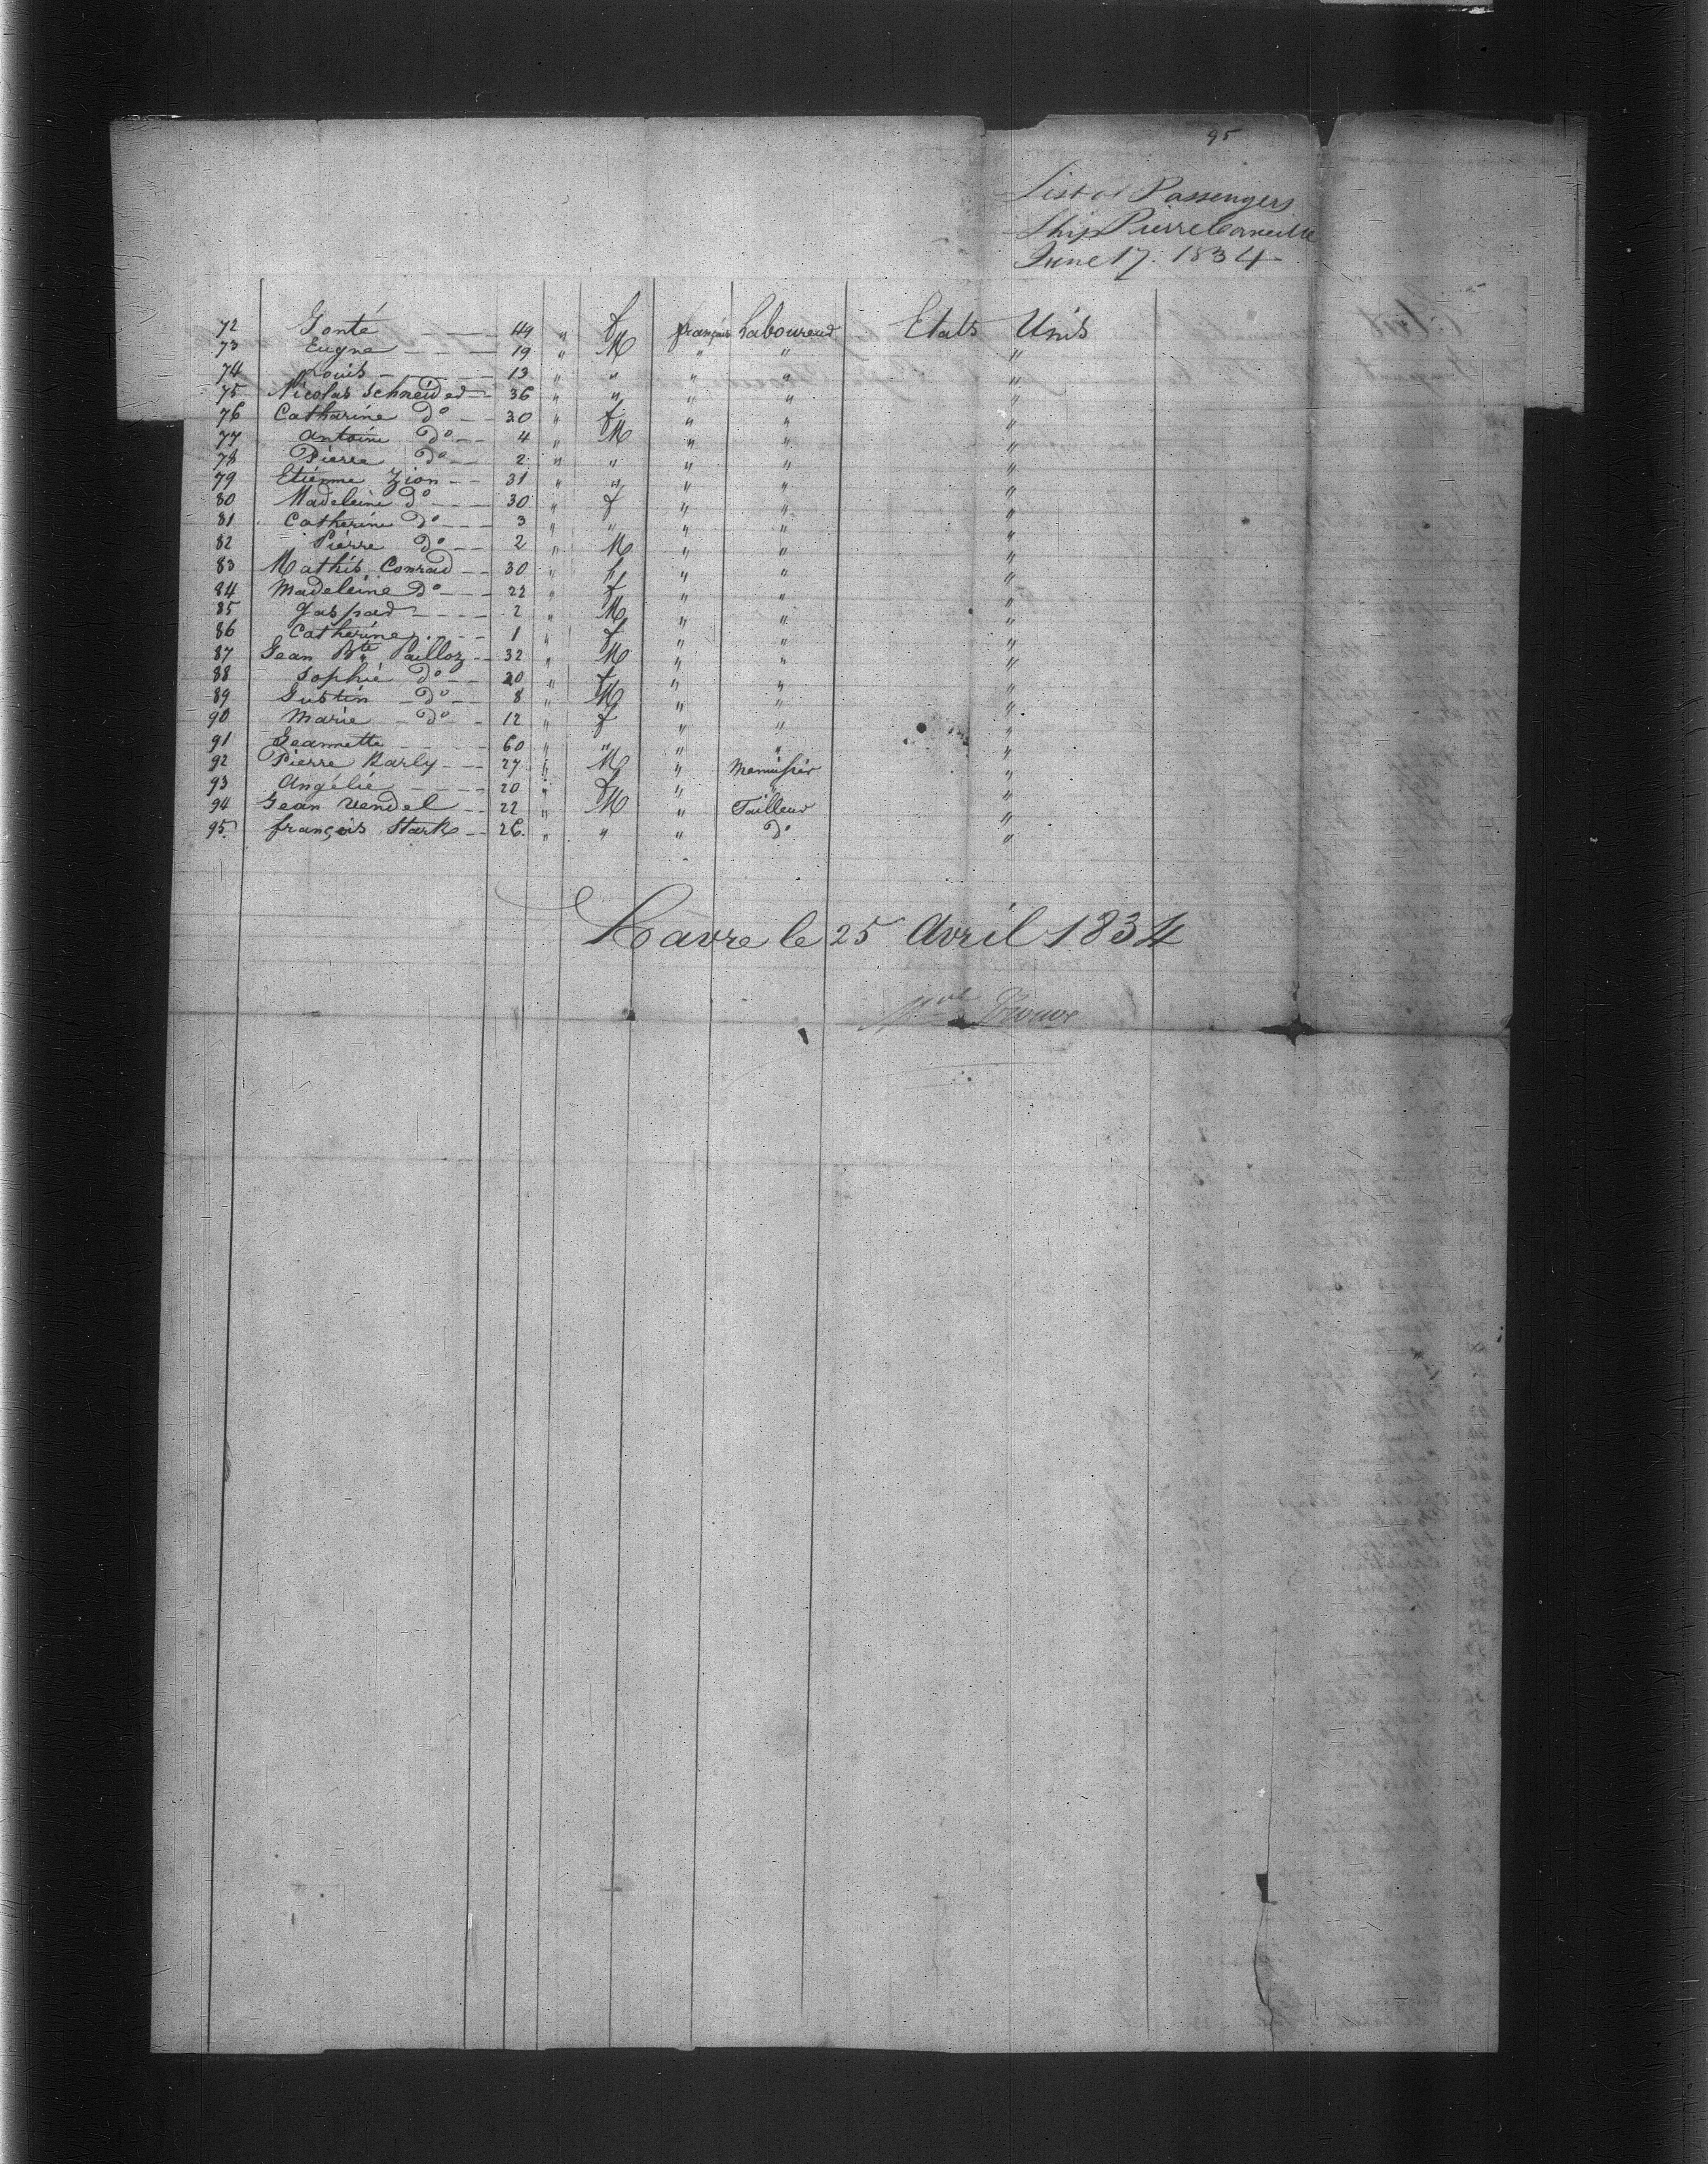 95
List of Passengers
Ship Pierre Corneille
June 17. 1834
72 Gonté 49 " f français Laboureur Etats Unis
73 Eugne 19 " M " " "
74 Louis 13 " " " " "
75 Nicolas Schneider 36 " " " " "
76 Catharine do 30 " f " " "
77 Antoine do 4 " M " " "
78 Pierre do 2 " " " " "
79 Etienne Zion 31 " " " " "
80 Madeleine do 30 " f " " "
81 Catherine do 3 " " " " "
82 Pierre do 2 " M " " "
83 Mathis Conrad 30 " " " " "
84 Madeleine do 22 " f " " "
85 Gaspard 2 " M " " "
86 Catherine 1 " f " " "
87 Jean Bte Pailloz 32 " M " " "
88 Sophie do 20 " f " " "
89 Justin do 8 " M " " "
90 Marie do 12 " f " " "
91 Jeannette 60 " " " " "
92 Pierre Karly 27 " M " Menuisier "
93 Angélie 20 " f " " "
94 Jean Vendel 22 " M " Tailleur "
95 françois Stark 26 " " " do "
Havre le 25 Avril 1834